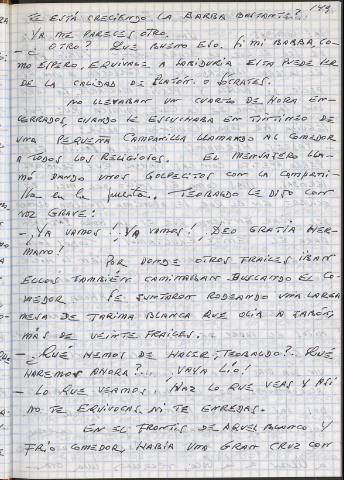 149
TE ESTÁ CRECIENDO LA BARBA BASTANTE?.
YA ME PARECES OTRO.
- ¿ OTRO? QUE BUENO ESO. SI MI BARBA, CO-
MO ESPERO, EQUIVALE A SABIDURIA ESTA PUEDE SER
DE LA CALIDAD DE PLATÓN O SÓCRATES.
NO LLEVABAN UN CUARTO DE HORA EN-
CERRADOS, CUANDO SE ESCUCHABA EN TINTINEO DE
UNA PEQUEÑA CAMPANILLA LLAMANDO AL COMEDOR
A TODOS LOS RELIGIOSOS. EL MENSAJERO LLA-
MÓ DANDO UNOS GOLPECITOS CON LA CAMPANI-
lla en la puerta. TEOBALDO LE DIJO CON
VOZ GRAVE:
- ¡YA VAMOS! ¡YA VAMOS! ¡DEO GRATIA HER-
MANO!
POR DONDE OTROS FRAILES IBAN
ELLOS TAMBIÉN CAMINABAN BUSCANDO EL CO-
MEDOR. SE JUNTARON RODEANDO UNA LARGA
MESA DE TARIMA BLANCA QUE OLIA A JABÓN,
MÁS DE VEINTE FRAILES.
- ¿QUÉ HEMOS DE HACER, TEOBALDO?. ¿QUÉ
HAREMOS AHORA?... ¡VAYA LIO!
- LO QUE VEAMOS. HAZ LO QUE VEAS Y ASI
NO TE EQUIVOCAS, NI TE ENREDAS.
EN EL FRONTIS DE AQUEL BLANCO Y
FRÍO COMEDOR, HABÍA UNA GRAN CRUZ CON